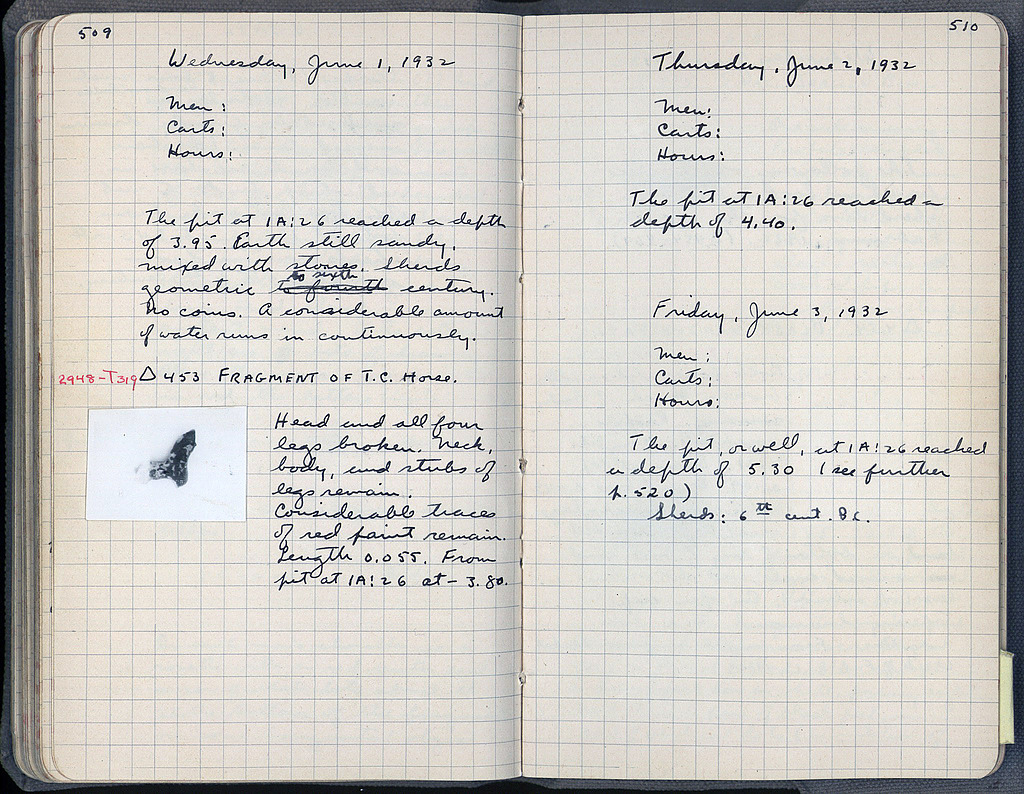 509
Wednesday, June 1, 1932
Men:
Carts:
Hours:
The pit at 1A:26 reached a depth
of 3.95. Earth still sandy,
mixed with stones. Sherds
to sixth
geometric to fourth century.
No coins. A considerable amount
of water runs in continuously.
2948-T319 △ 453 FRAGMENT OF T.C. Horse.
Head and all four
legs broken. Neck,
body, and stubs of
legs remain.
Considerable traces
of red paint remain.
Length 0.055. From
pit at 1A:26 at -3.80.
510
Thursday, June 2, 1932
Men:
Carts:
Hours:
The pit at 1A:26 reached a
depth of 4.40.
Friday, June 3, 1932
Men:
Carts:
Hours:
The pit, or well, at 1A:26 reached
a depth of 5.30 (see further
p. 520)
Sherds: 6th cent. B.C.